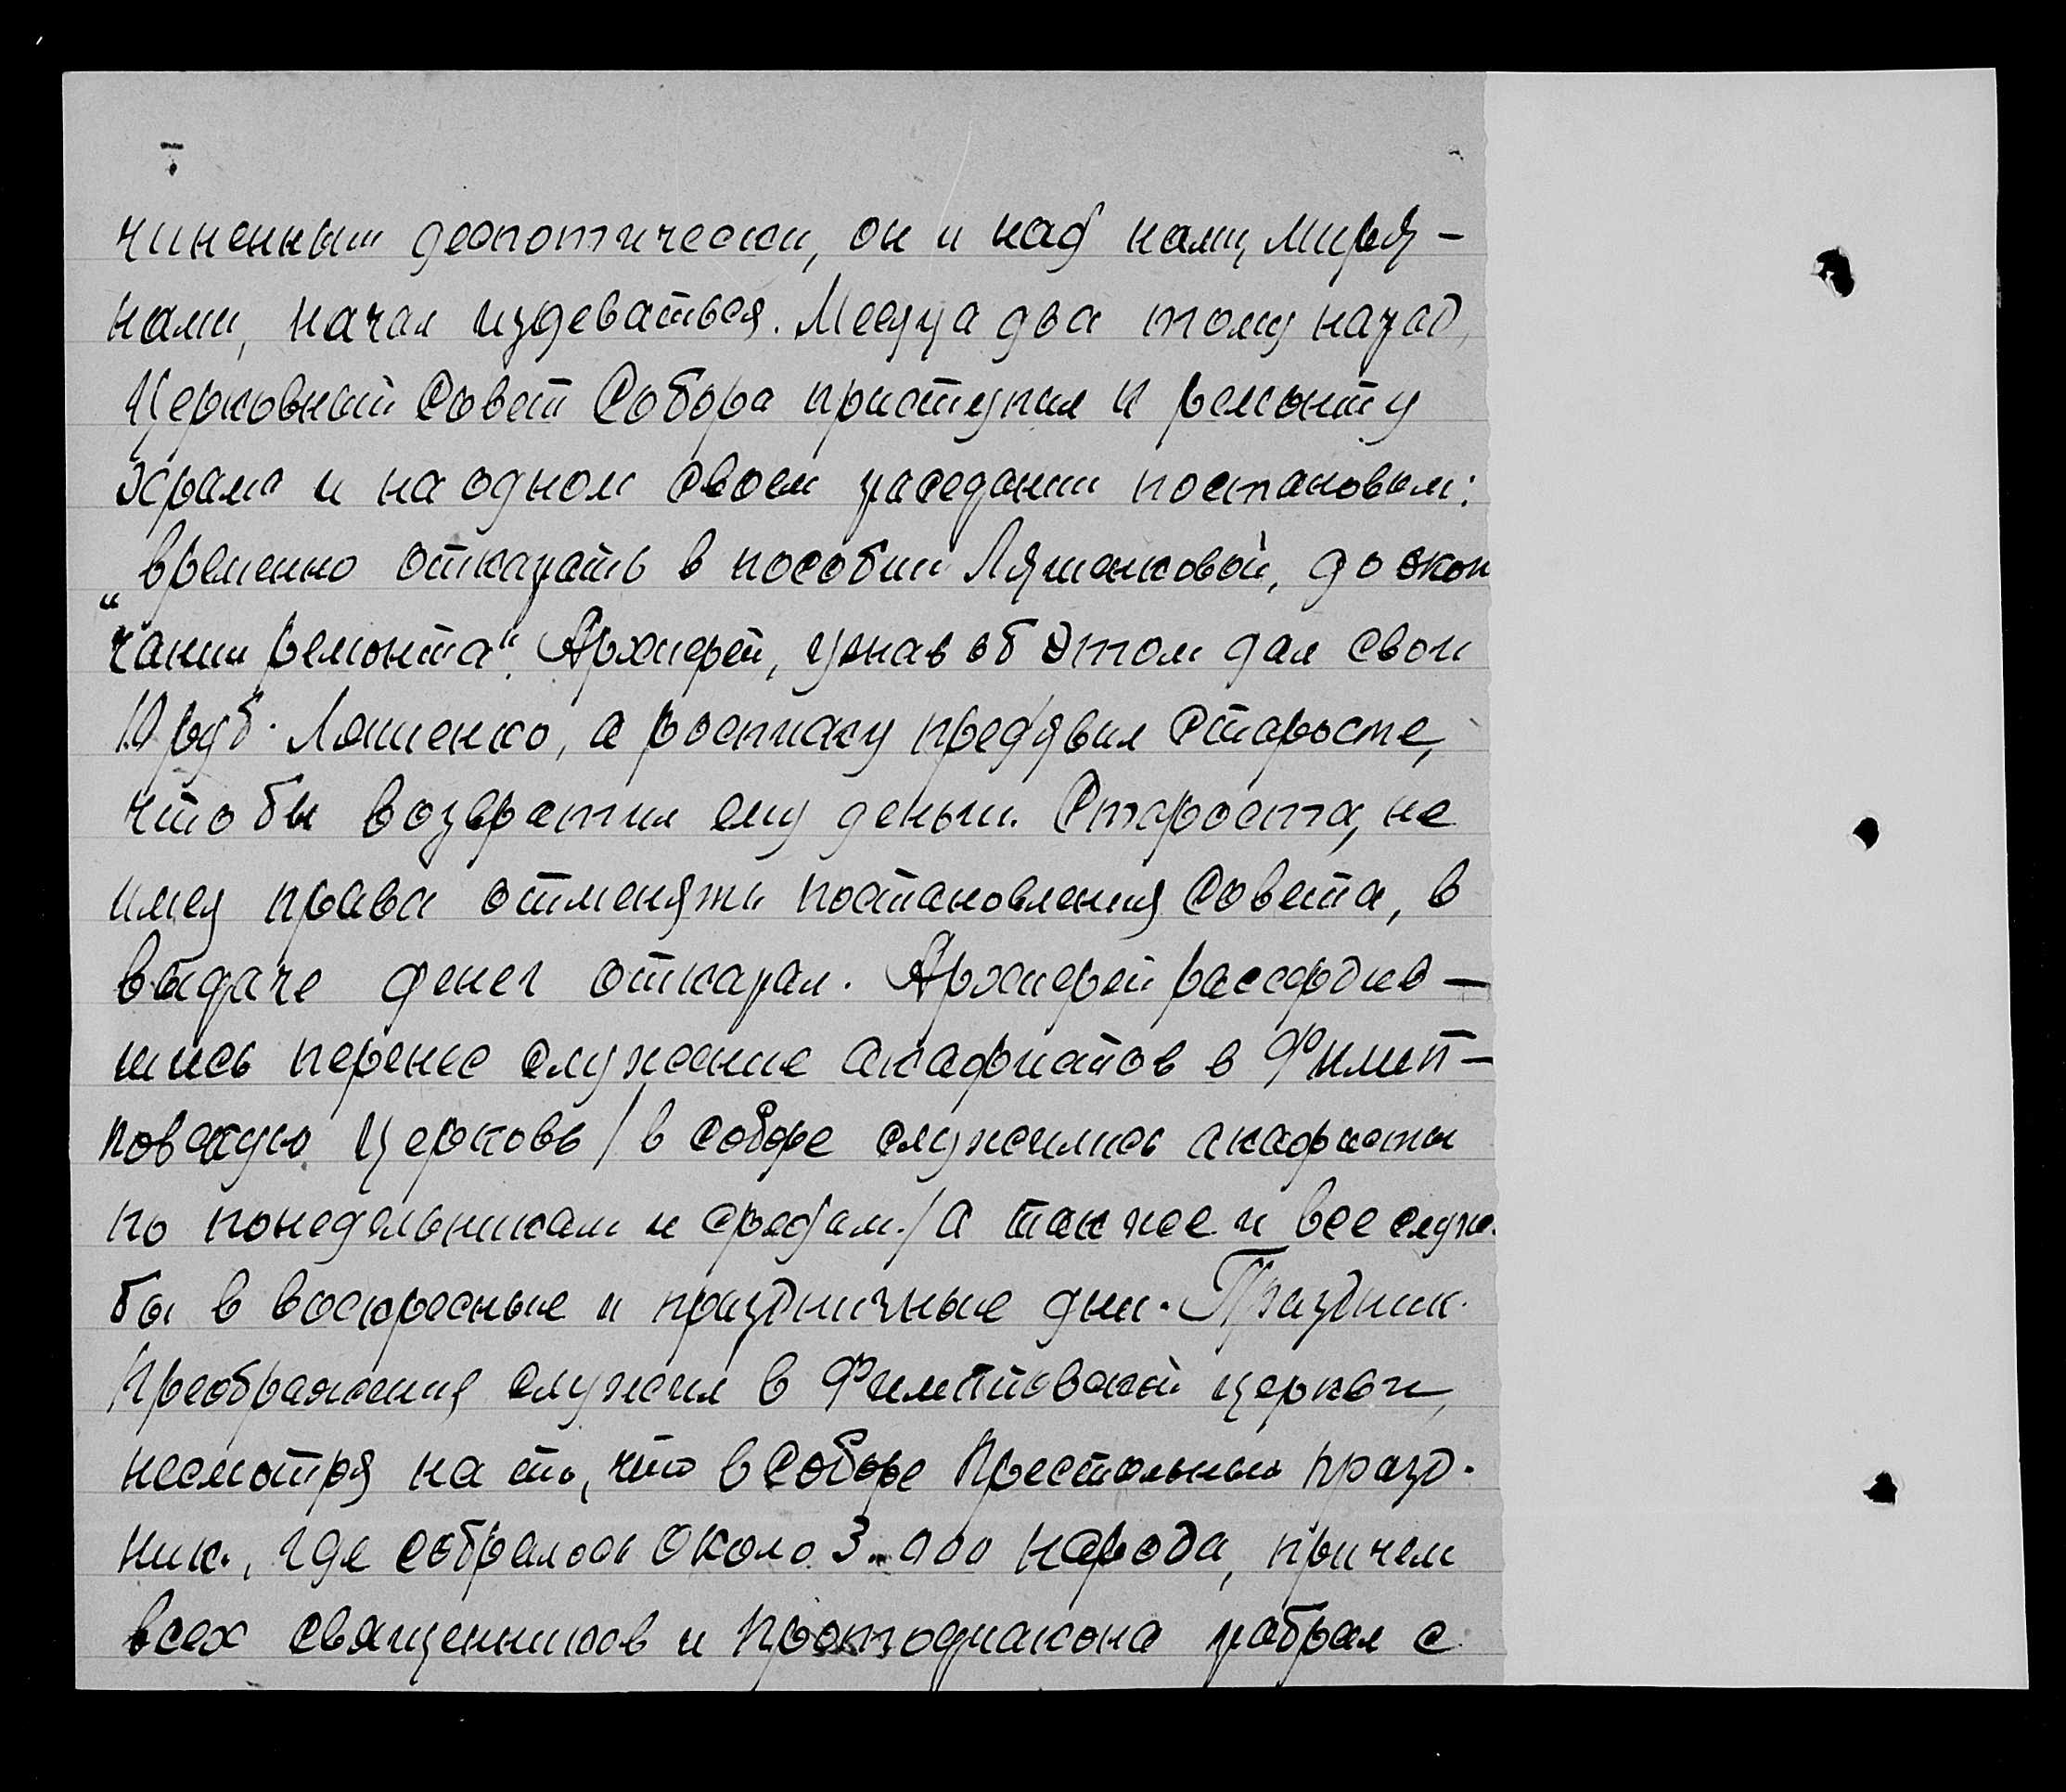 чиненным деспотически, он и над нами, миря-
нами, начал издеваться. Месяца два тому назад,
Церковный Совет Собора приступил к ремонту
храма и на одном своем заседании постановил:
„временно отказать в пособии Ляшенковой, до окон
чании ремонта". Архиерей, узнав об этом дал свои
10 руб. Ляшенко, а росписку пред'явил Старосте,
что бы возвратил ему деньги. Староста, не
имея права отменять постановления Совета, в
выдаче денег отказал. Архиерей рассердив-
шись перенес служение акафистов в Филип-
повскую Церковь /в соборе служились акафисты
по понедельникам и средам./ а так же и все служ-
бы в воскресные и праздничные дни. Праздник
Преображения служил в Филипповской церкви,
несмотря на то, что в Соборе Престольный празд-
ник., где собралось около 3.000 народа, причем
всех священников и протодиакона забрал с